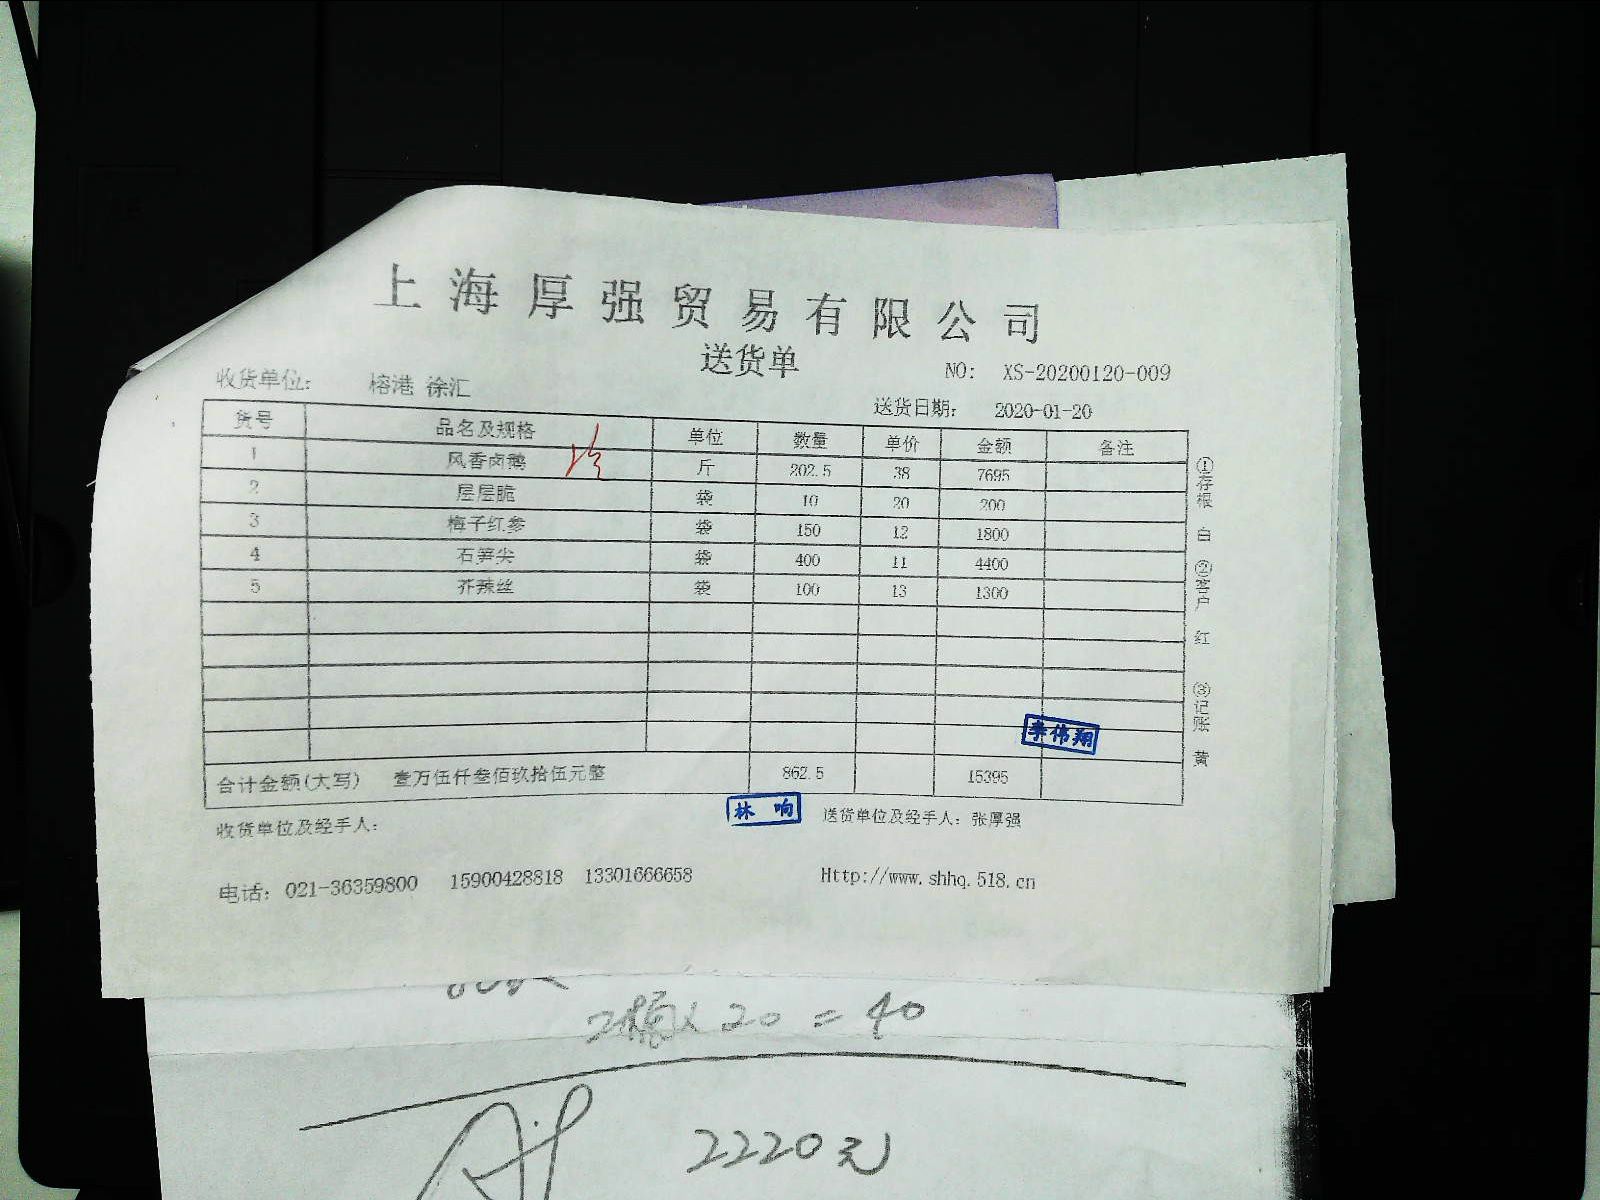 上海厚强贸易有限公司
送货单
收货单位: 榕港 徐汇 NO: XS-20200120-009
送货日期: 2020-01-20
货号 品名及规格 单位 数量 单价 金额 备注
1 风香卤鹅 斤 202.5 38 7695
2 层层脆 袋 10 20 200
3 梅子红参 袋 150 12 1800
4 石笋尖 袋 400 11 4400
5 芥辣丝 袋 100 13 1300
合计金额(大写) 壹万伍仟叁佰玖拾伍元整 862.5 15395
李伟翔
收货单位及经手人: 林响 送货单位及经手人: 张厚强
电话: 021-36359800 15900428818 13301666658 Http://www.shhq.518.cn
①存根 白 ②客户 红 ③记账 黄
20 = 40
2220元